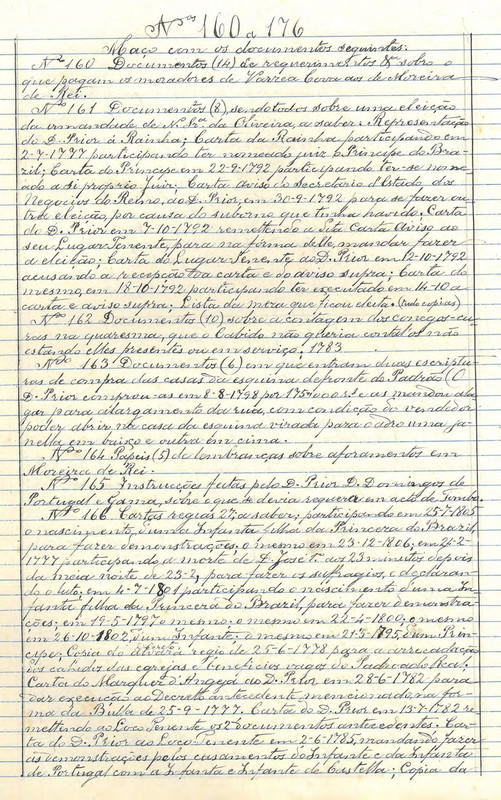 Nos 160 a 176
Maço com os documentos seguintes:
Nº 160 Documentos (14) de requerimentos &ª sobre o
que pagam os moradores de Varzea Cova aos de Moreira
de Rei.
Nº 161 Documentos (8), sendo todos sobre uma eleição
da irmandade de N. Srª da Oliveira, a saber: Representação
do D. Prior á Rainha; Carta da Rainha participando em
2-7-1777 participando ter nomeado juiz o Principe do Bra-
zil; Carta do Principe em 22-9-1792 participando ter-se nome-
ado a si proprio Juiz; Carta aviso do secretario d'Estado dos
Negocios do Reino, ao D. Prior, em 30-9-1792 para se fazer ou-
tra eleição, por causa do suborno que tinha havido. Carta
do D. Prior em 7-10-1792 remettendo a dita Carta Aviso ao
seu Lugar Tenente, para na forma delle, mandar fazer
a eleição; Carta do Lugar Tenente ao D. Prior em 12-10-1792
acusando a recepção da carta e do aviso supra; Carta do
mesmo, em 18-10-1792 participando ter executado em 14-10 a
carta e aviso supra; Lista da meza que ficou eleita. (tudo copias)
Nº 162 Documentos (10) sobre a contagem dos conegos-cu-
ras na quaresma, que o Cabido não queria contal-os não
estando elles presentes ou em serviço. 1783
Nº 163 Documentos (6) em que entram duas escriptu-
ras de compra das casas da esquina defronte do Padrão (O
D. Prior comprou-as em 8-8-1798 por e as mandou ala-
gar para alargamento da rua, com condição do vendedor
poder abrir na casa da esquina virada para o adro uma ja-
nella em baixo e outra em cima.
Nº 164 Papeis (5) de lembranças sobre aforamentos em
Moreira de Rei.
Nº 165 Instrucções feitas pelo D. Prior D. Domingos de
Portugal e Gama, sobre o que se devia requerer em acto de Tombo.
Nº 166 Cartas regias 27, a saber; participando em 25-7-1805
o nascimento d'uma Infanta filha da Princeza do Brazil,
para fazer demonstrações; o mesmo em 23-12-1806; em 2-2-
1777 participando a morte de D. José 1º aos 23 minutos depois
da meia noite de 23-2, para fazer os suffragios, e declaran-
do o luto; em 4-7-1801 participando o nascimento d'uma In-
fanta filha da Princeza do Brazil, para fazer demonstra-
ções; em 19-5-1797 o mesmo; o mesmo em 22-4-1800; o mesmo
em 26-10-1802, d'um Infante; o mesmo em 21-3-1795 d'um Prin-
cipe; Copia do decreto regio de 25-6-1778 para a arrecadação
dos cahidos das egrejas e beneficios vagos do Padroado Real;
Carta do Marquez d'Angeja ao D. Prior em 28-6-1782 para
dar execução ao Decreto antecedente, mencionada na for-
ma da Bulla de 25-9-1777. Carta do D. Prior em 13-7-1782 re-
mettendo ao Loco Tenente os 2 documentos antecedentes. Car-
ta do D. Prior ao Loco-Tenente em 2-6-1785, mandando fazer
as demonstrações pelos casamentos do Infante e da Infanta
de Portugal com a Infanta e Infante de Castella; Copia da